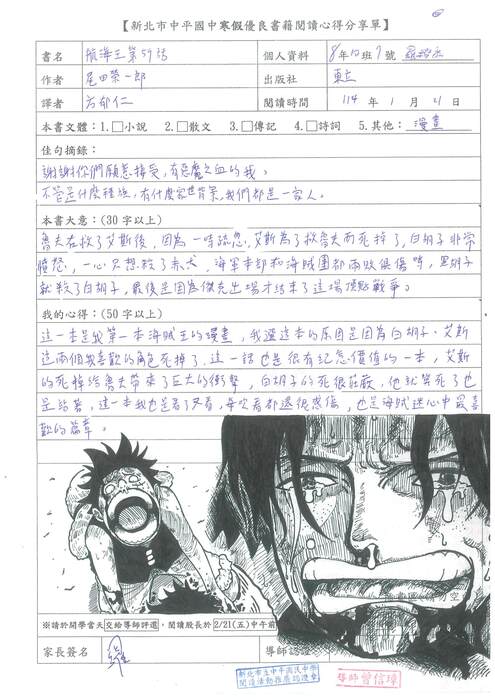 【新北市中平國中寒假優良書籍閱讀心得分享單】
書名 航海王第59話 個人資料 8年12班7號
作者 尾田榮一郎 出版社 東立
譯者 方郁仁 閱讀時間 114年1月21日
本書文體：1.□小說 2.□散文 3.□傳記 4.□詩詞 5.其他：漫畫
佳句摘錄：
謝謝你們願意接受，有惡魔之血的我。
不管是什麼種族，有什麼家世背景，我們都是一家人。
本書大意：(30字以上)
魯夫在救了艾斯後，因為一時疏忽，艾斯為了救魯夫而死掉了，白胡子非常
憤怒，一心只想殺了赤犬，海軍本部和海賊團都兩敗俱傷時，黑胡子
就殺了白胡子，最後是因為傑克出場才結束了這場頂點戰爭。
我的心得：(50字以上)
這一本是我第一本海賊王的漫畫，我選這本的原因是因為白胡子、艾斯
這兩個我喜歡的角色死掉了，這一話也是很有紀念價值的一本，艾斯
的死掉給魯夫帶來了巨大的衝擊，白胡子的死很莊嚴，他就算死了也
是站著，這一本我也是看了又看，每次看都還很感傷，也是海賊迷心中最喜
歡的篇章。
※請於開學當天交給導師評選，閱讀股長於2/21(五)中午前
家長簽名 導師認證
新北市立中平國民中學
閱讀活動推廣認證章
導師曾信瑋